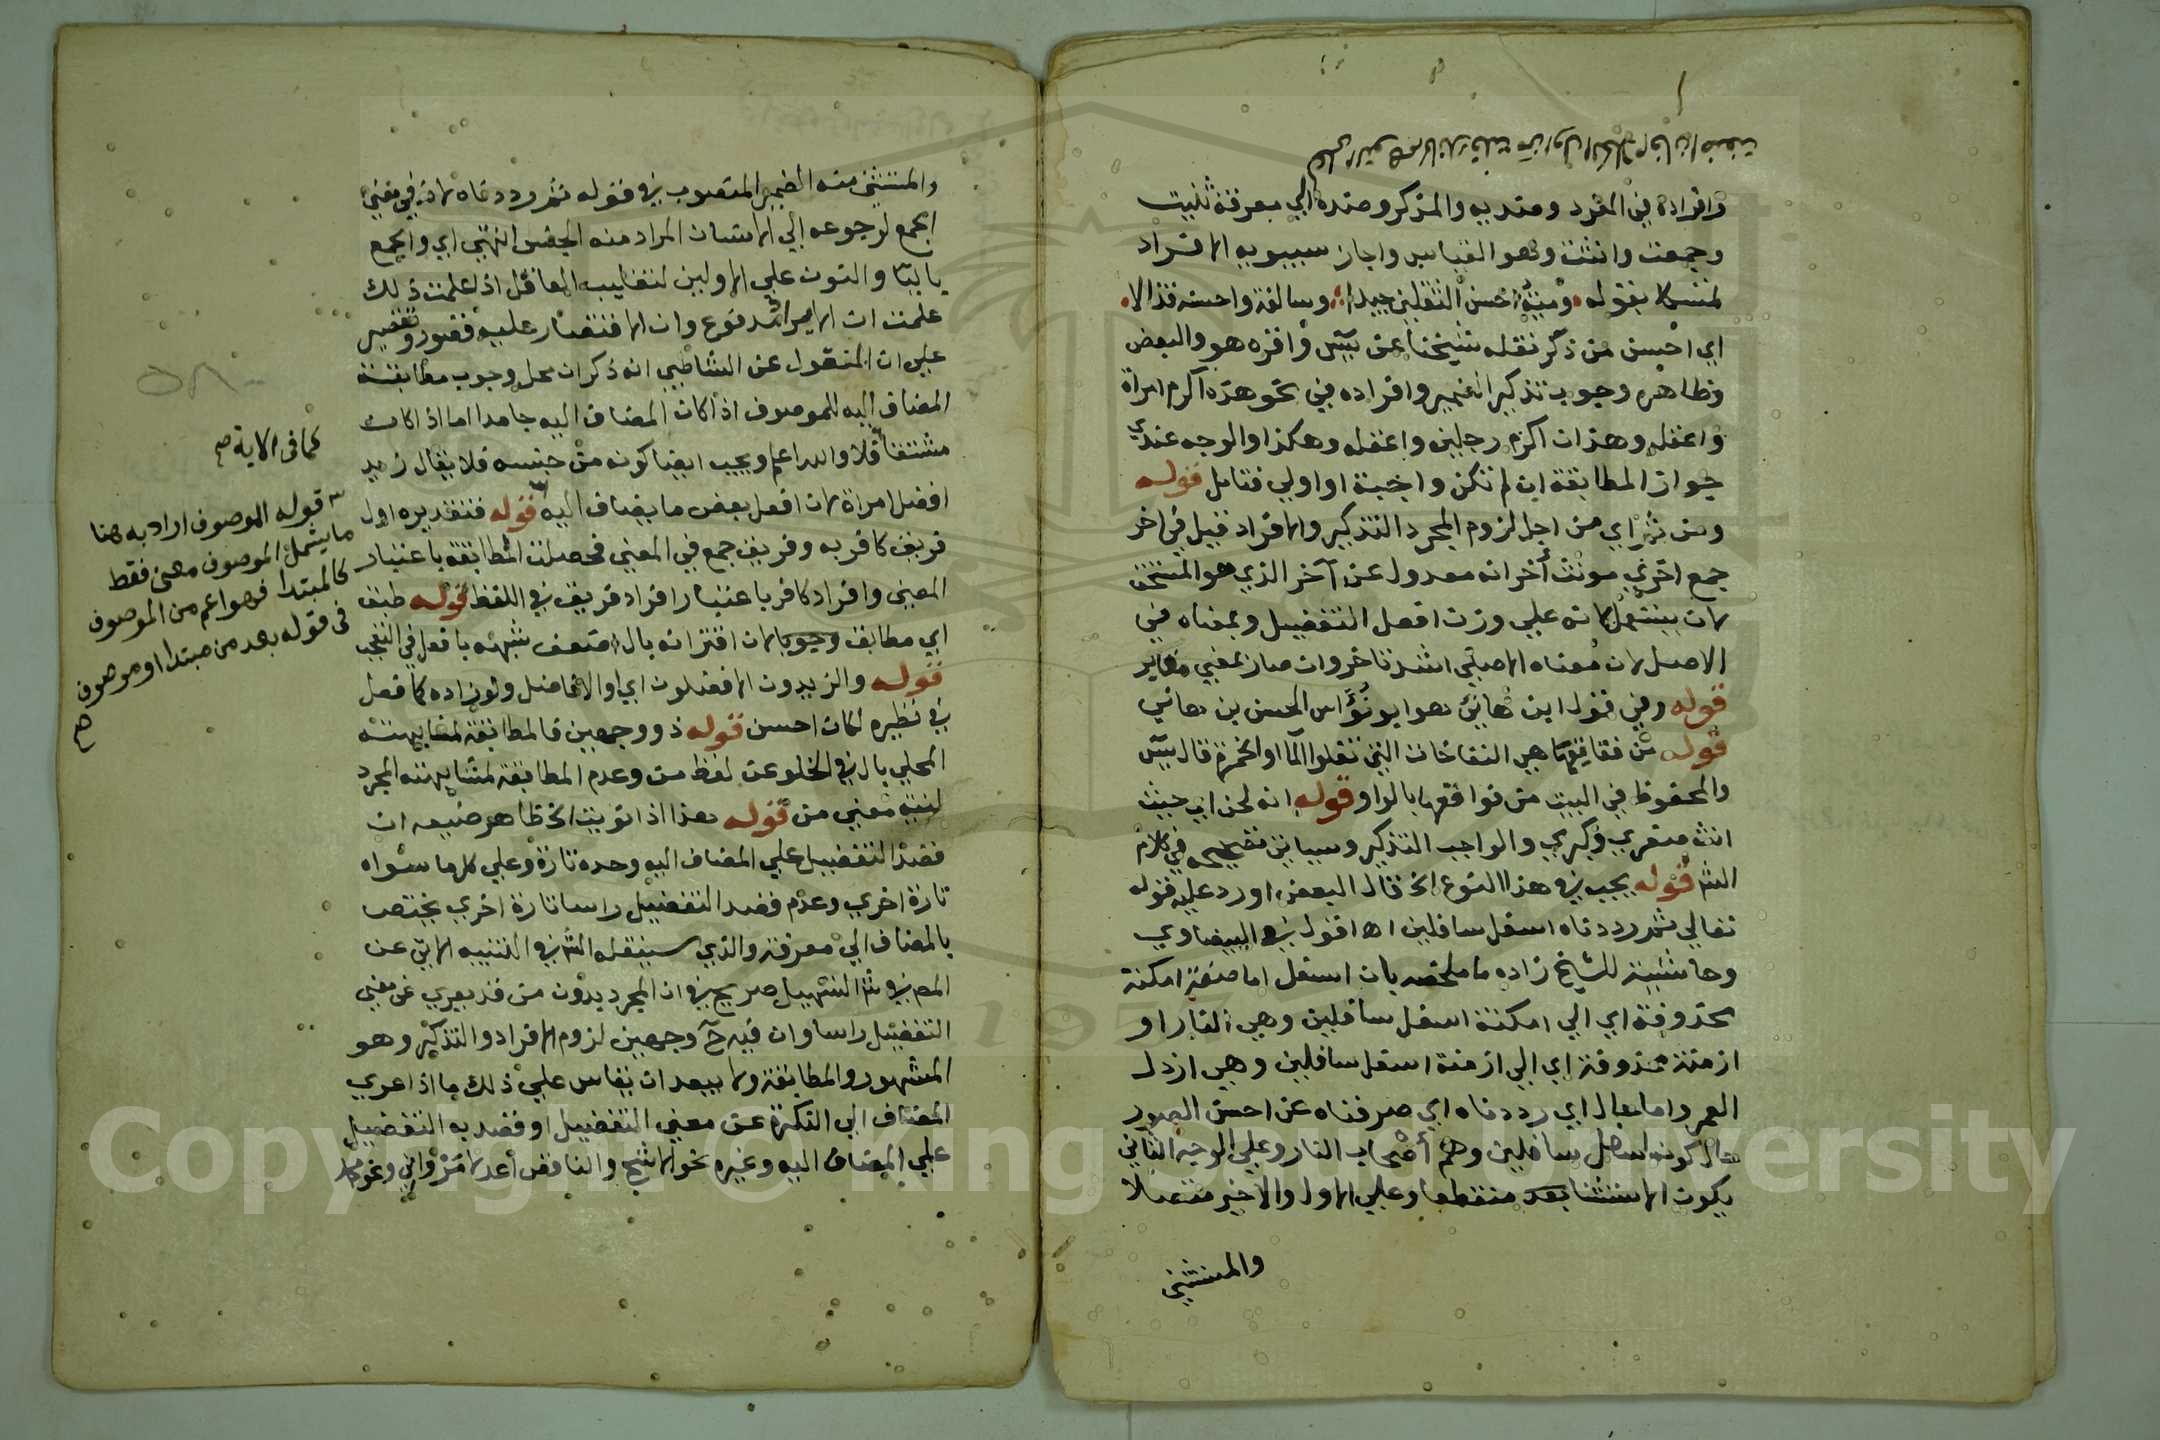 وافراده في المفرد ومنديه والمذكر وضده الي معرفة ثنيت
وجمعت وانثت وهو القياس واجاز سيبويه الافراد
تمسكا بقوله ومية احسن الثقلين جيدا وسالفة واحسنه قذالا
اي احسن من ذكر نقله شيخنا عن يس واقره هو والبعض
وظاهره وجوب تذكير الضمير وافراده في نحو هذه اكرم امراة
واعقله وهذان اكرم رجلين واعقله وهكذا والوجه عندي
جواز المطابقة ان لم تكن واجبة او اولي فتامل قوله
ومن ثم اي من اجل لزوم المجرد التذكير والافراد قيل في اخر
جمع اخري مونث أخر انه معدول عن آخر الذي هو المستحق
لان يستعمل لانه علي وزن افعل التفضيل وبمعناه في
الاصل لان معناه الاصلي اشد تاخرا وان صار بمعني مغاير
قوله وفي قول ابن هانئ هو ابو نُوَاس الحسن بن هاني
قوله من فقاقعها هي النفاخات التي تعلوا الما او الخمرة قال يس
والمحفوظ في البيت من فواقعها بالواو قوله انه لحن اي حيث
انث صغري وكبري والواجب التذكير وسياتي تصحيحه في كلام
الش قوله يجب في هذا النوع الخ قال البعض اورد عليه قوله
تعالي ثم رددناه اسفل سافلين اه اقول في البيضاوي
وحاشيته للشيخ زاده ما ملخصه بان اسفل اما صفة امكنة
محذوفة اي الي امكنة اسفل سافلين وهي النار او
ازمنة محذوفة اي الي ازمنة اسفل سافلين وهي ارذل
العمر واما بحال اي رددناه اي صرفناه عن احسن الصور
حال كونه اسفل سافلين وهم أصحاب النار وعلي الوجه الثاني
يكون الاستثنا بعد منقطعا وعلي الاول والاخير متصلا
والمستثني
والمستثني منه الضمير المنصوب في قوله ثم رددناه لانه في معني
الجمع لرجوعه الي الانسان المراد منه الجنس انتهي اي والجمع
باليا والنون علي الاولين لتغليب العاقل اذا علمت ذلك
علمت ان الايراد مدفوع وان الاقتصار عليه قصور وتقصير
علي ان المنقول عن الشاطبي انه ذكر ان محل وجوب مطابقة
المضاف اليه للموصوف اذا كان المضاف اليه جامدا اما اذا كان
مشتقا فلا والله اعلم ويجب ايضا كونه من جنسه فلا يقال زيد
افضل امراة لان افعل بعض ما يضاف اليه قوله فتقديره اول
فريق كافر به وفريق جمع في المعني فحصلت المطابقة باعتبار
المعني وافراد كافر باعتبار افراد فريق في اللفظ قوله طبق
اي مطابق وجوبا لان اقترانه بال اضعف شبهه بافعل في التعجب
قوله والزيدون الافضلون اي او الافاضل ولو زاده كما فعل
في نظيره لكان احسن قوله ذو وجهين فالمطابقة لمشابهته
المحلي بال في الخلو عن لفظ من وعدم المطابقة لمشابهته المجرد
لنية معني من قوله هذا اذا نويت الخ ظاهر صنيعه ان
قصد التفضيل علي المضاف اليه وحده تارة وعلي كل ما سواه
تارة اخري وعدم قصد التفضيل راسا تارة اخري يختص
بالمضاف الي معرفة والذي سينقله الش في التنبيه الاتي عن
المص في ش التسهيل صريح في ان المجرد بدون من قد يعري عن معني
التفضيل راسا وان فيه ح وجهين لزوم الافراد والتذكير وهو
المشهور والمطابقة ولا يبعد ان يقاس علي ذلك ما اذا عري
المضاف الي النكرة عن معني التفضيل او قصد به التفضيل
علي المضاف اليه وغيره نحو الاشج والناقص أعدلا مروان ونحو
كما في الاية صح
قوله الموصوف اراد به هنا
ما يشمل الموصوف معني فقط
كالمبتدا فهو اعم من الموصوف
في قوله بعد من مبتدا او موصوف
Copyright © King Saud University